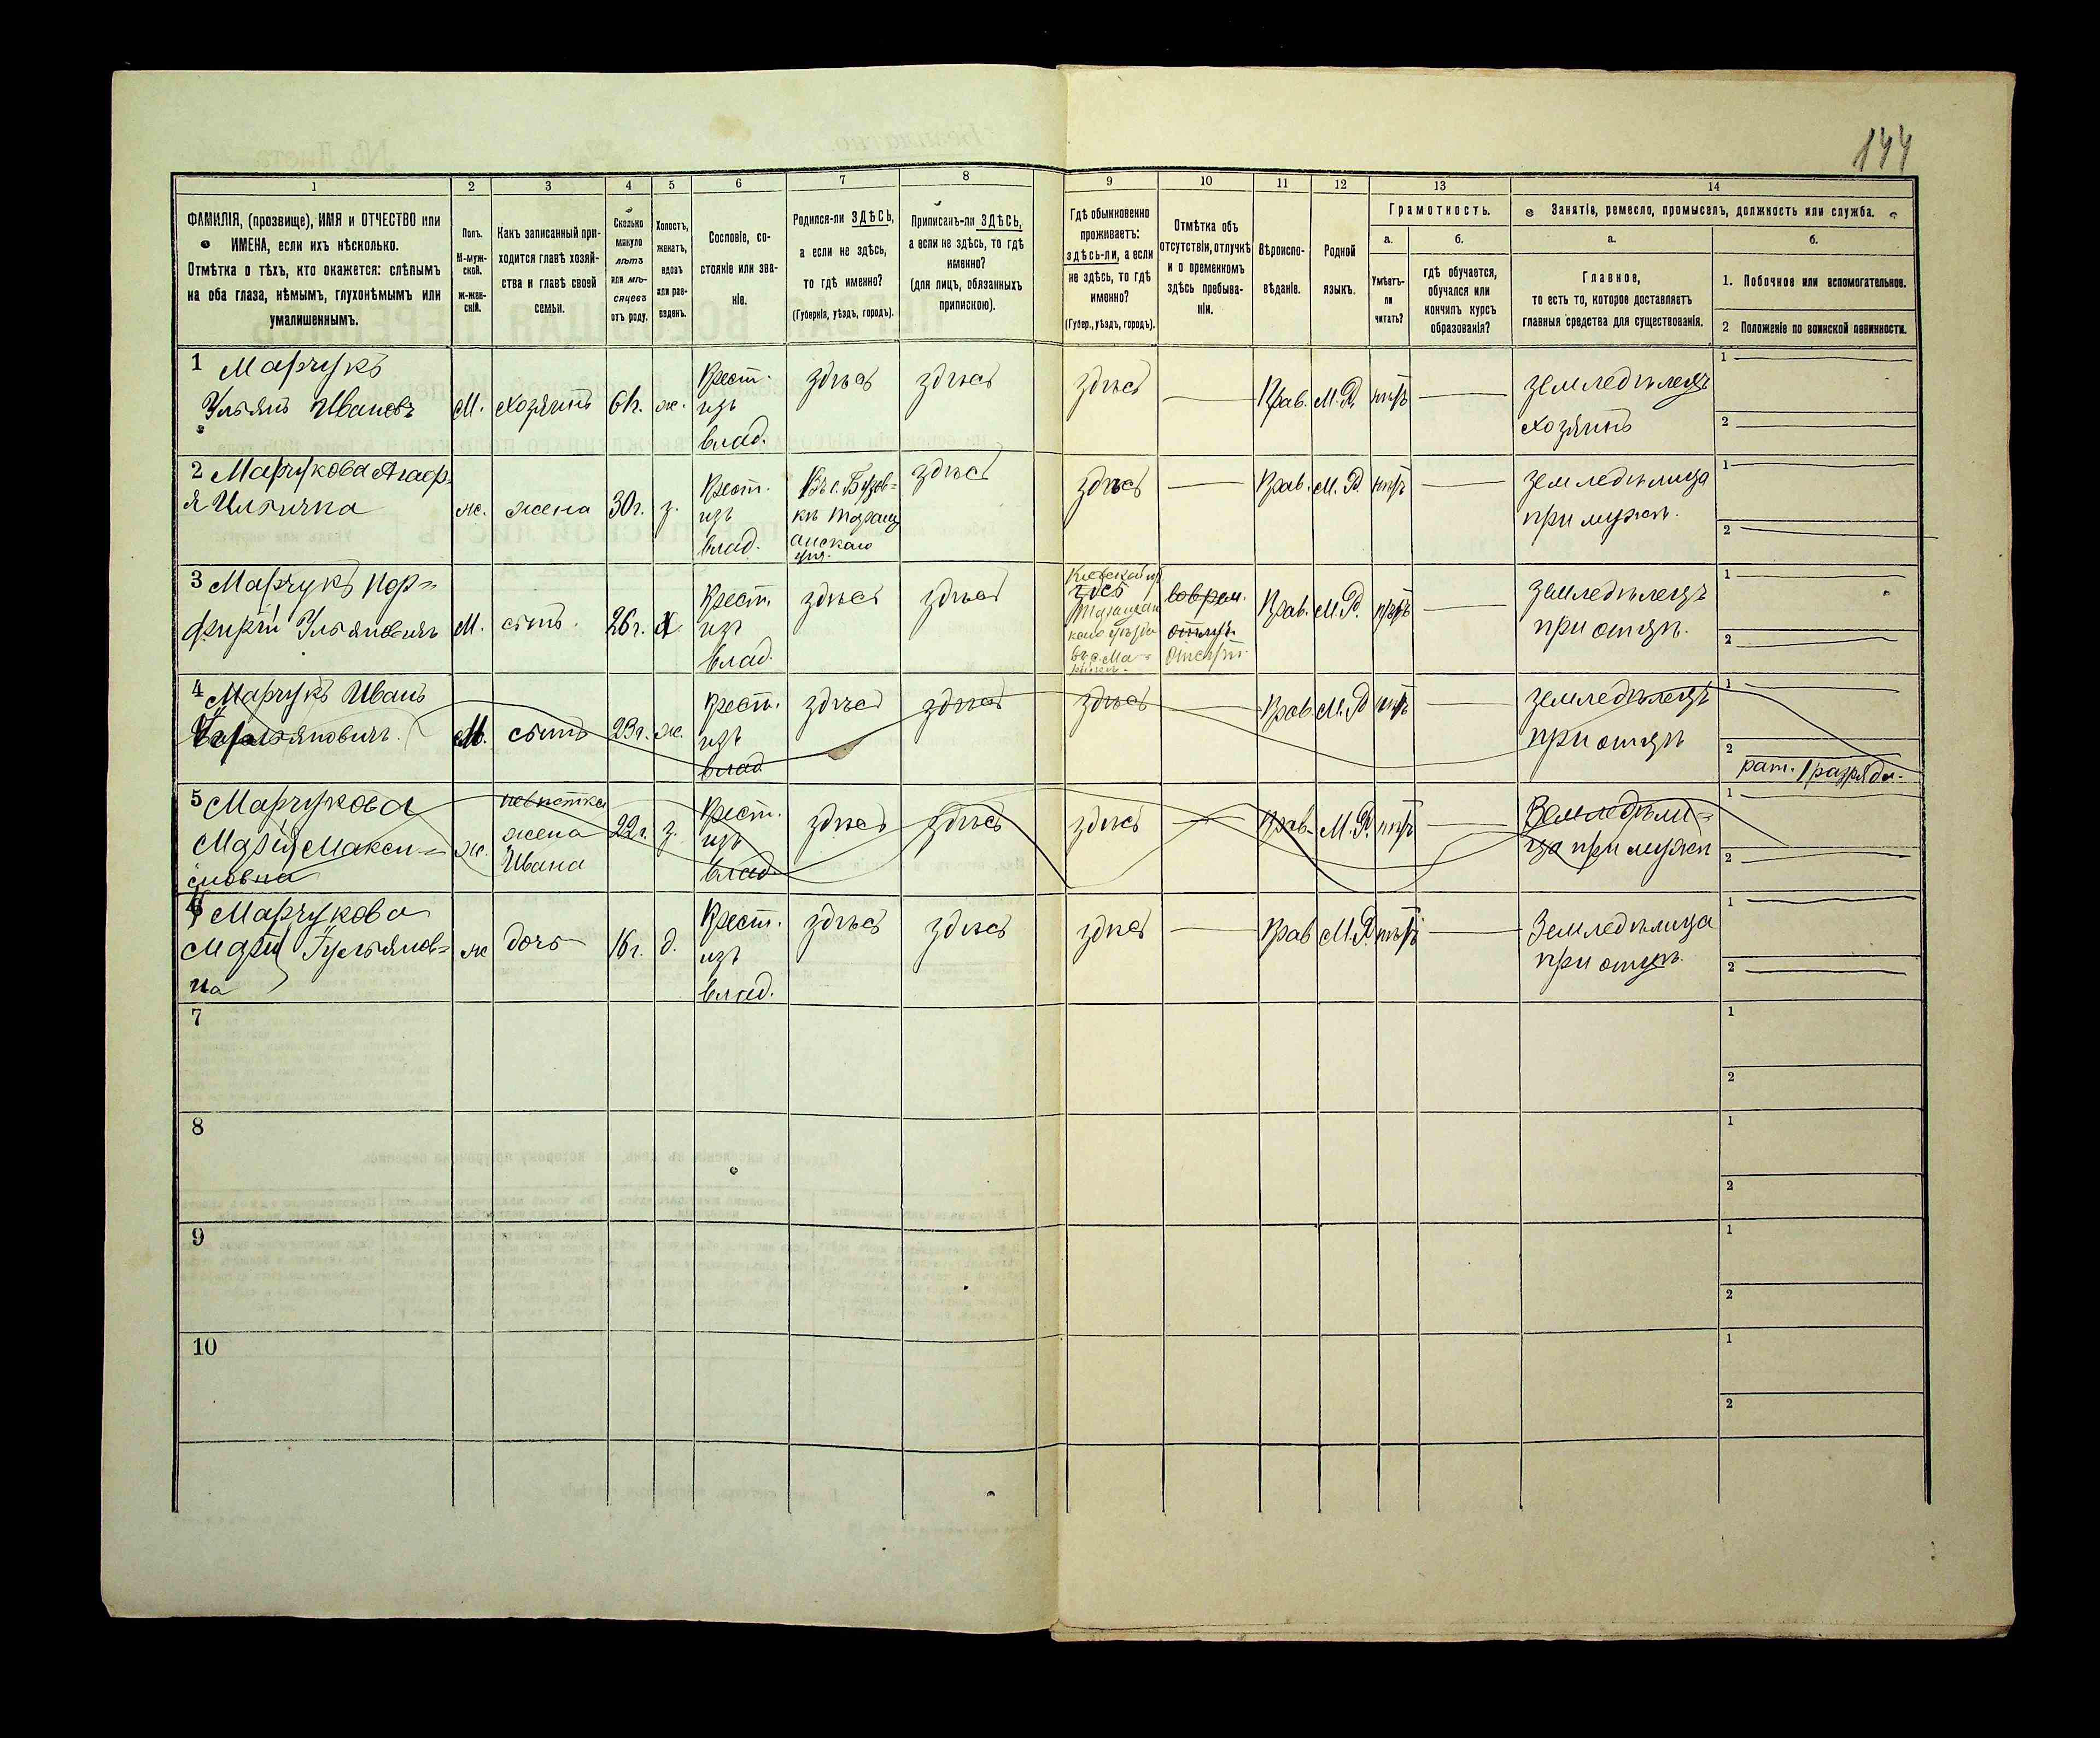 144
1 2 3 4 5 6 7 8 9 10 11 12 13 14
ФАМИЛІЯ, (прозвище), ИМЯ и ОТЧЕСТВО или
ИМЕНА, если ихъ нѣсколько.
Отмѣтка о тѣхъ, кто окажется: слѣпымъ
на оба глаза, нѣмымъ, глухонѣмымъ или
умалишеннымъ.
Полъ.
М-муж-
ской.
ж-жен-
скій.
Какъ записанный при-
ходится главѣ хозяй-
ства и главѣ своей
семьи.
Сколько
минуло
лѣтъ
или мѣ-
сяцевъ
отъ роду.
Холостъ,
женатъ,
вдовъ
или раз-
веденъ.
Сословіе, со-
стояніе или зва-
ніе.
Родился-ли ЗДѢСЬ,
а если не здѣсь,
то гдѣ именно?
(Губернія, уѣздъ, городъ).
Приписанъ-ли ЗДѢСЬ,
а если не здѣсь, то гдѣ
именно?
(для лицъ, обязанныхъ
припискою).
Гдѣ обыкновенно
проживаетъ:
здѣсь-ли, а если
не здѣсь, то гдѣ
именно?
(Губер., уѣздъ, городъ).
Отмѣтка объ
отсутствіи, отлучкѣ
и о временномъ
здѣсь пребыва-
ніи.
Вѣроиспо-
вѣданіе.
Родной
языкъ.
Грамотность.
а.
Умѣетъ-
ли
читать?
б.
гдѣ обучается,
обучался или
кончилъ курсъ
образованія?
Занятіе, ремесло, промыселъ, должность или служба.
а.
Главное,
то есть то, которое доставляетъ
главныя средства для существованія.
б.
1. Побочное или вспомогательное.
2 Положеніе по воинской повинности.
1 Марчукъ
Ульянъ Ивановъ
М. хозяинъ ж.
Крест.
изъ
влад.
здѣсь здѣсь здѣсь Прав. М.Р. нѣтъ
земледѣлецъ
хозяинъ
1
2
2 Марчукова Агаф.
я Ильична
ж. жена 30г. з.
Крест.
изъ
влад.
Въ с. Бузов-
кѣ Таращ
анскаго
уѣз.
здѣсь здѣсь Прав. М.Р. нѣтъ
земледѣлица
при мужѣ.
1
2
3 Марчукъ Пор-
фирій Ульяновичъ
М. сынъ. 26г. х
Крест.
изъ
влад.
здѣсь здѣсь
Кіевской губ
Таращан
каго уѣзда
въ с. Ма-
Прав. М.Р. нѣтъ
земледѣлецъ
при отцѣ.
1
2
4 Марчукъ Иванъ
Ульяновичъ.
М. сынъ 23г. ж.
Крест.
изъ
влад
здѣсь здѣсь здѣсь Прав. М.Р нѣтъ
земледѣлецъ
при отцѣ
1
2
рат. 1 разряда.
5 Марчукова
Марія Макси-
мовна
ж.
невѣстка
жена
Ивана
22г. з.
Крест.
изъ
влад.
здѣсь здѣсь здѣсь Прав. М.Р. нѣтъ
Земледѣли-
ца при мужѣ
1
2
6 Марчукова
Марія Гульянов-
на
ж дочь 16г. д.
Крест.
изъ
влад.
здѣсь здѣсь здѣсь Прав М.Р. нѣтъ
Земледѣлица
при отцѣ.
1
2
7
1
2
8
1
2
9
1
2
10
1
2